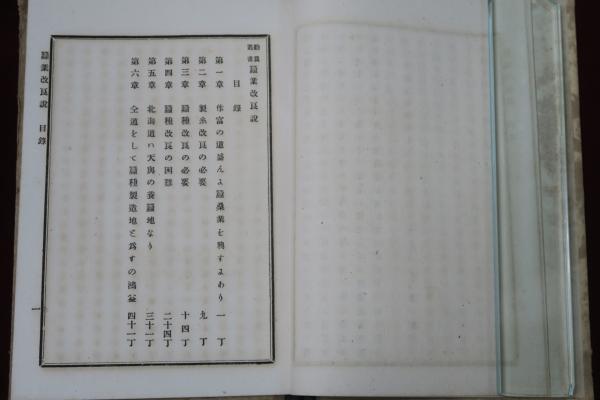 勧農叢書 蠶業改良說
目錄
第一章 作富の道盛んよ蠶桑業を興すよあり 一丁
第二章 製糸改良の必要 九丁
第三章 蠶種改良の必要 十四丁
第四章 蠶種改良の困難 二十四丁
第五章 北海道ハ天與の養蠶地なり 三十一丁
第六章 全道をして蠶種製造地と爲すの鴻益 四十一丁
蠶業改良說 目錄 一